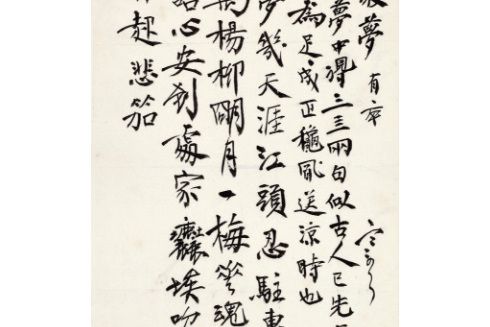 夢 有
夢中得三三兩句似古人已先
為足成正穐風送涼時也
夢幾天涯江頭忍駐車
楊柳明月一梅花魂
心安到處家 埃吩
起悲笳